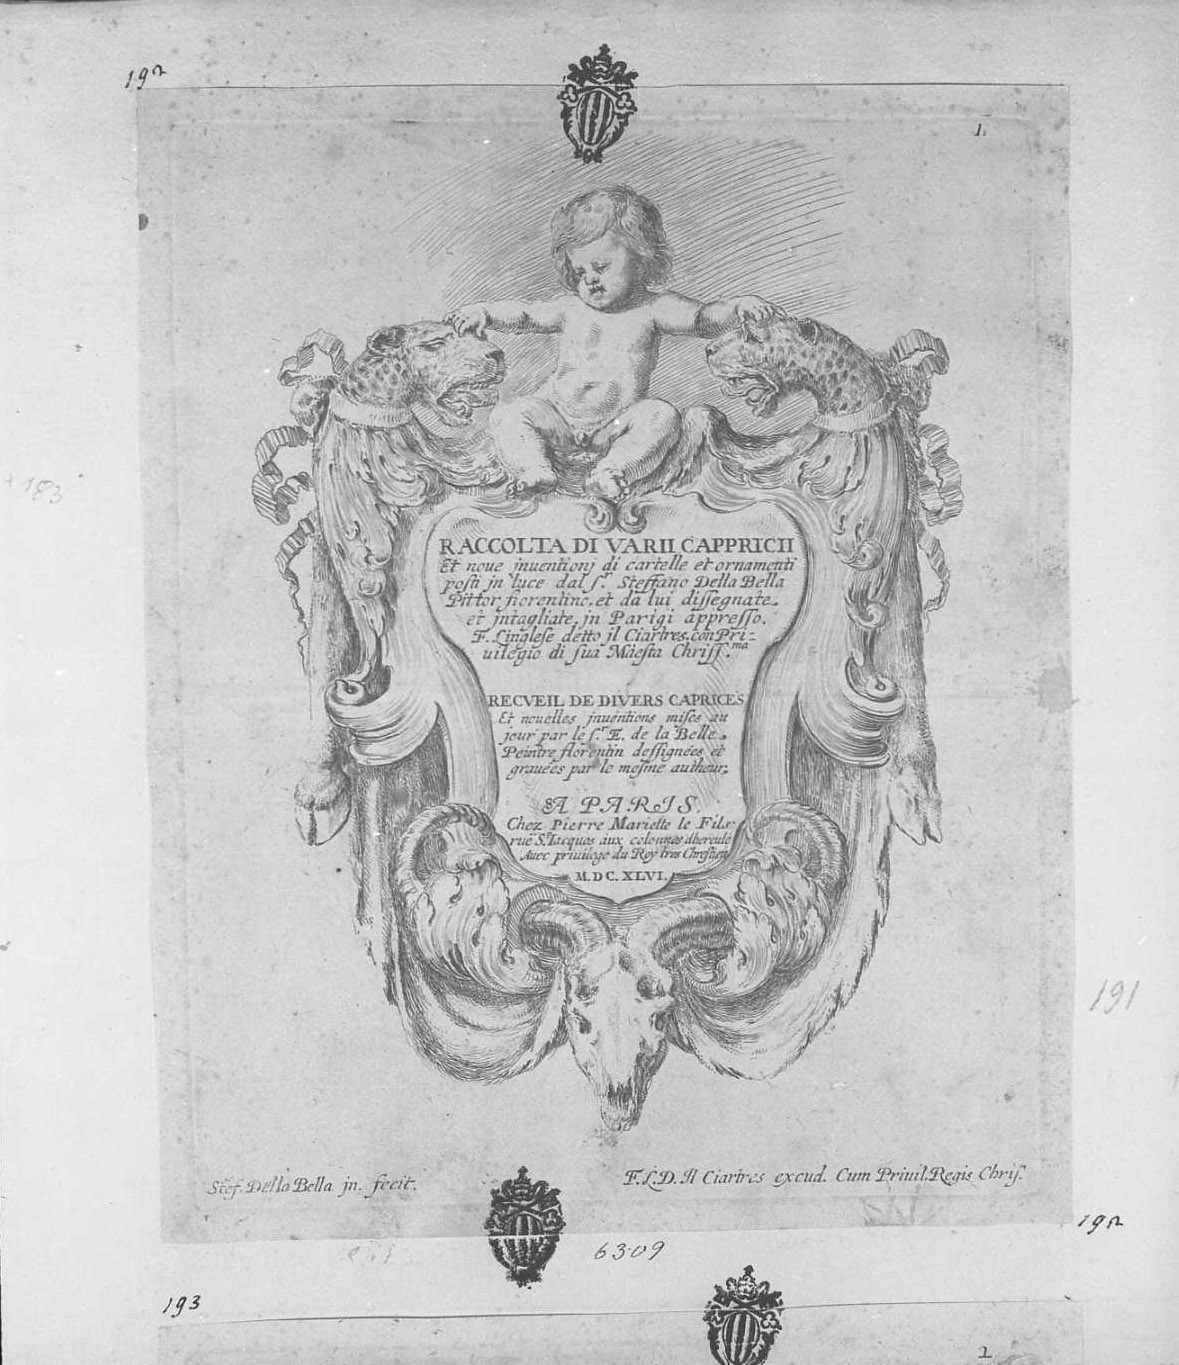 192
1.
183
RACCOLTA DI VARII CAPPRICII
Et noue jnuentionj di cartelle et ornamenti
posti jn luce dal s.r Steffano Della Bella
Pittor fiorentino, et da lui dissegnate,
et jntagliate, jn Parigi appresso.
F. L'inglese detto jl Ciartres. con Pri-
uilegio di sua Maesta Chriss.ma
RECVEIL DE DIVERS CAPRICES
Et nouelles jnuentions mises au
jour par le s.r E. de la Belle.
Peintre florentin dessignées et
grauées par le mesme autheur.
A PARIS.
Chez Pierre Mariette le Fils
rue S.t Iacques aux colonnes dhercule
Auec priuilege du Roy tres Chrestien
M.DC.XLVI.
191
Stef. Della Bella jn. fecit.
F.L.D. Il Ciartres excud. Cum Priuil. Regis Chris.
192
6309
193
2